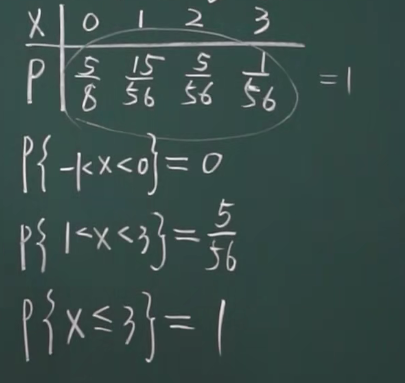 X 0 1 2 3
P 5/8 15/56 5/56 1/56 =1
P{-1<X<0}=0
P{1<X<3}=5/56
P{X≤3}=1